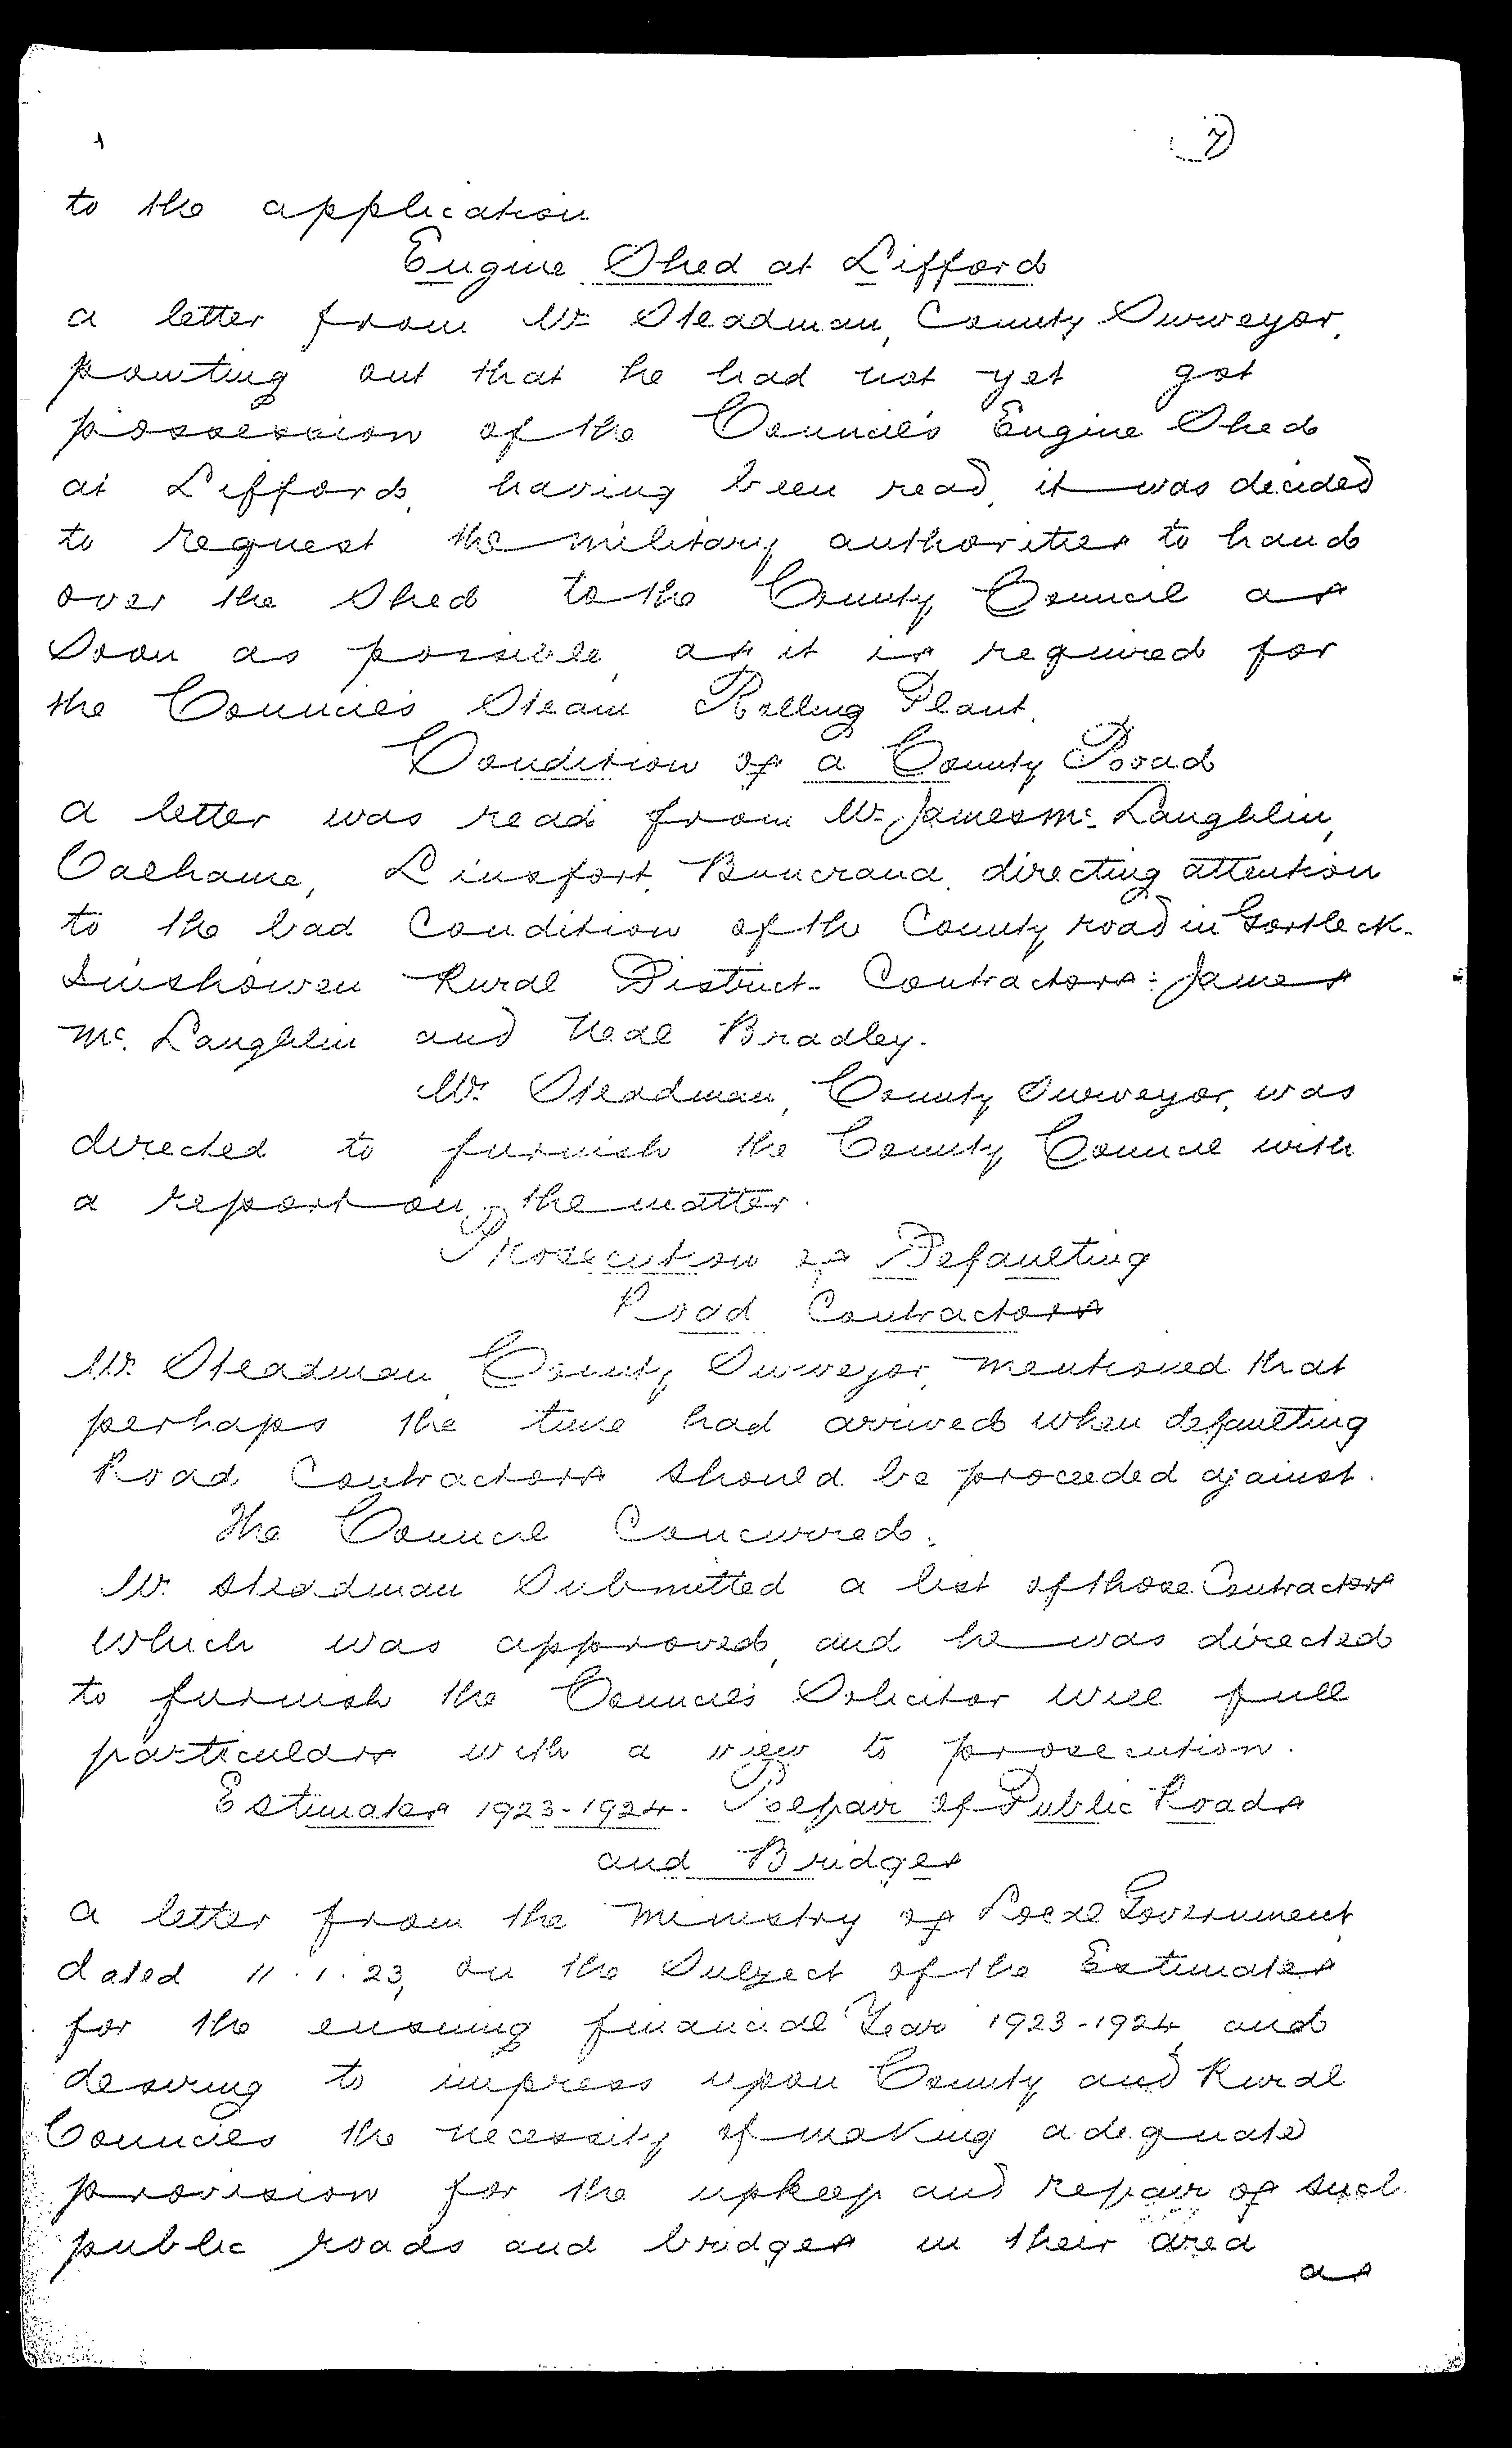 7
to the application
Engine Shed at Lifford
a letter from Mr Steadman, County Surveyor,
pointing out that he had not yet got
possession of the Council's Engine Shed
at Lifford, having been read, it was decided
to request the military authorities to hand
over the Shed to the County Council as
Soon as possible, as it is required for
the Council's Steam Rolling Plant.
Condition of a County Road
a letter was read from Mr. James Mc. Laughlin,
Linsfort, Buncrana, directing attention
to the bad Condition of the County road in Gortleck-
Inishowen Rural District- Contractors: James
Mc. Laughlin and Neal Bradley.
Mr. Steadman, County Surveyor, was
directed to furnish the County Council with
a report on the matter.
Prosecution of Defaulting
Road Contractors
Mr. Steadman, County Surveyor, mentioned that
perhaps the time had arrived when defaulting
Road Contractors should be proceeded against.
The Council Concurred.
Mr. Steadman Submitted a list of those Contractors
which was approved, and he was directed
to furnish the Council's Solicitor will full
particulars with a view to prosecution.
Estimates 1923-1924. Repair of Public Roads
and Bridges
a letter from the Ministry of Local Government
dated 11.1.23, on the Subject of the Estimates
for the ensuing financial Year 1923-1924, and
desiring to impress upon County and Rural
Councils the necessity of making adequate
provision for the upkeep and repair of such
public roads and bridges in their area
as